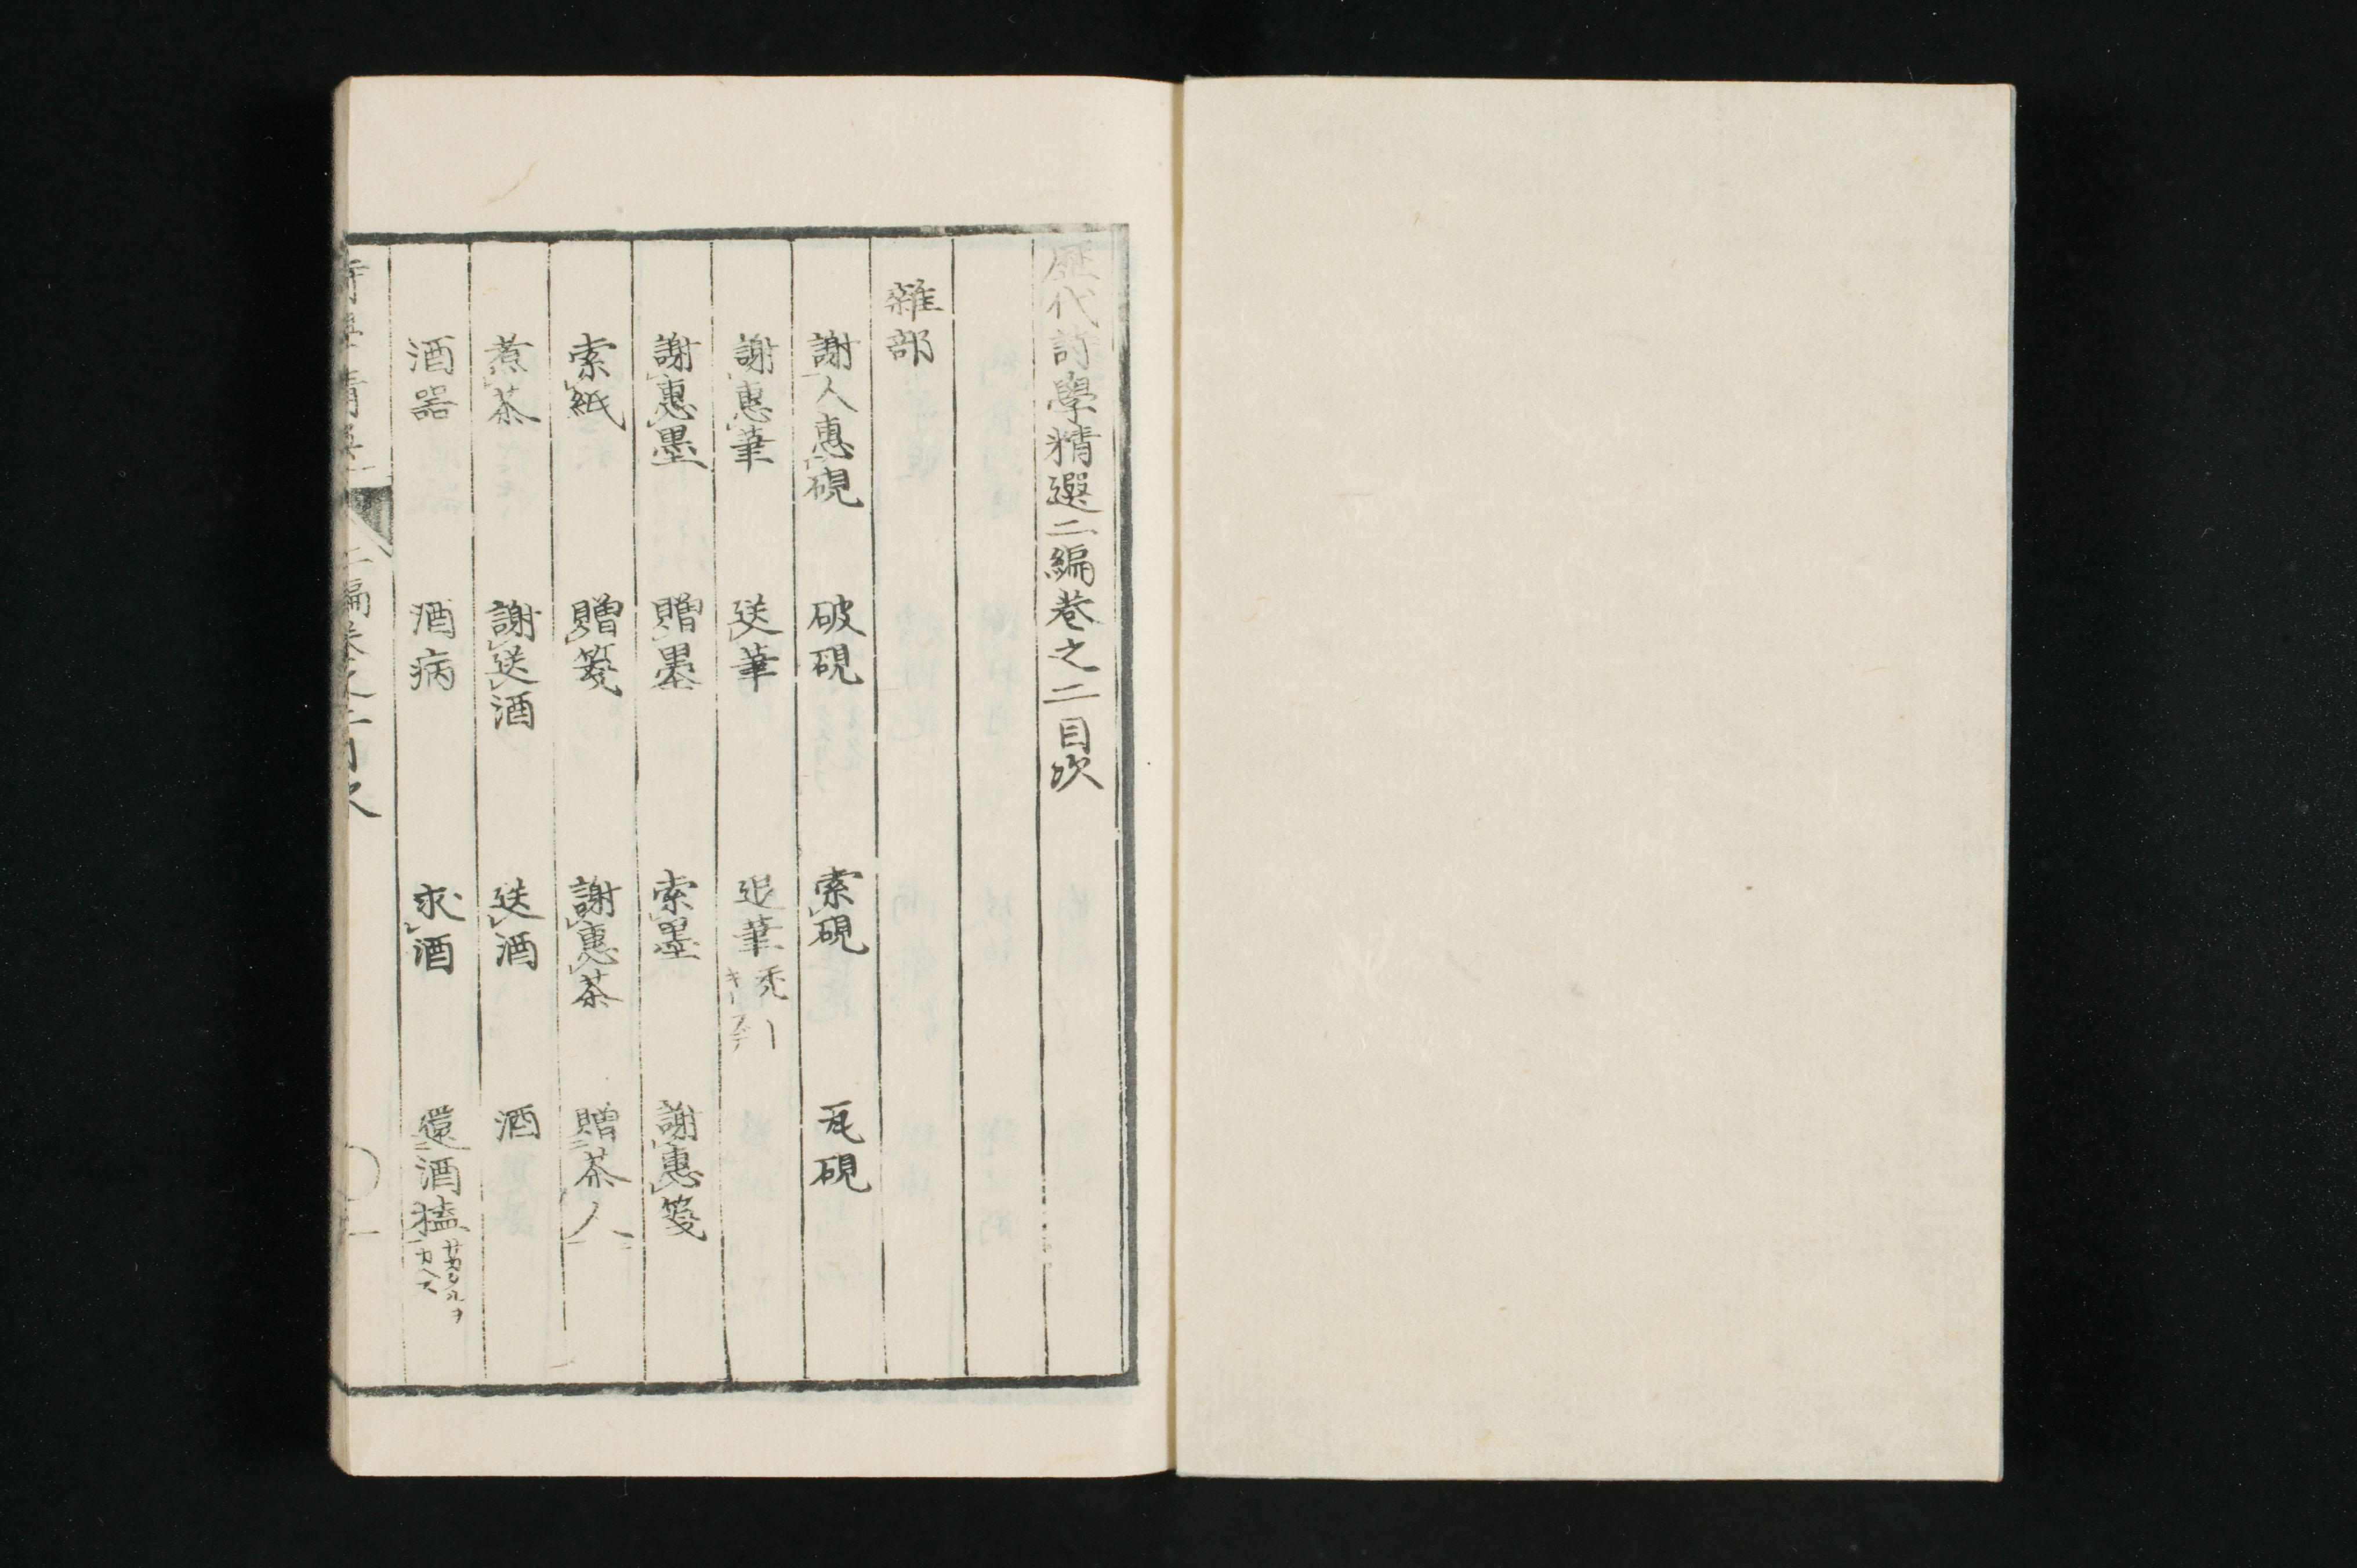 歴代詩學精選二編巻之二目次
雜部
謝人惠硯　破硯　索硯　瓦硯
謝惠筆　送筆　退筆 禿
謝惠墨　贈墨　索墨　謝惠箋
索紙　贈箋　謝惠茶　贈茶人
煮茶　謝送酒　送酒　酒
酒器　酒病　求酒　還酒榼
二編巻之二目次